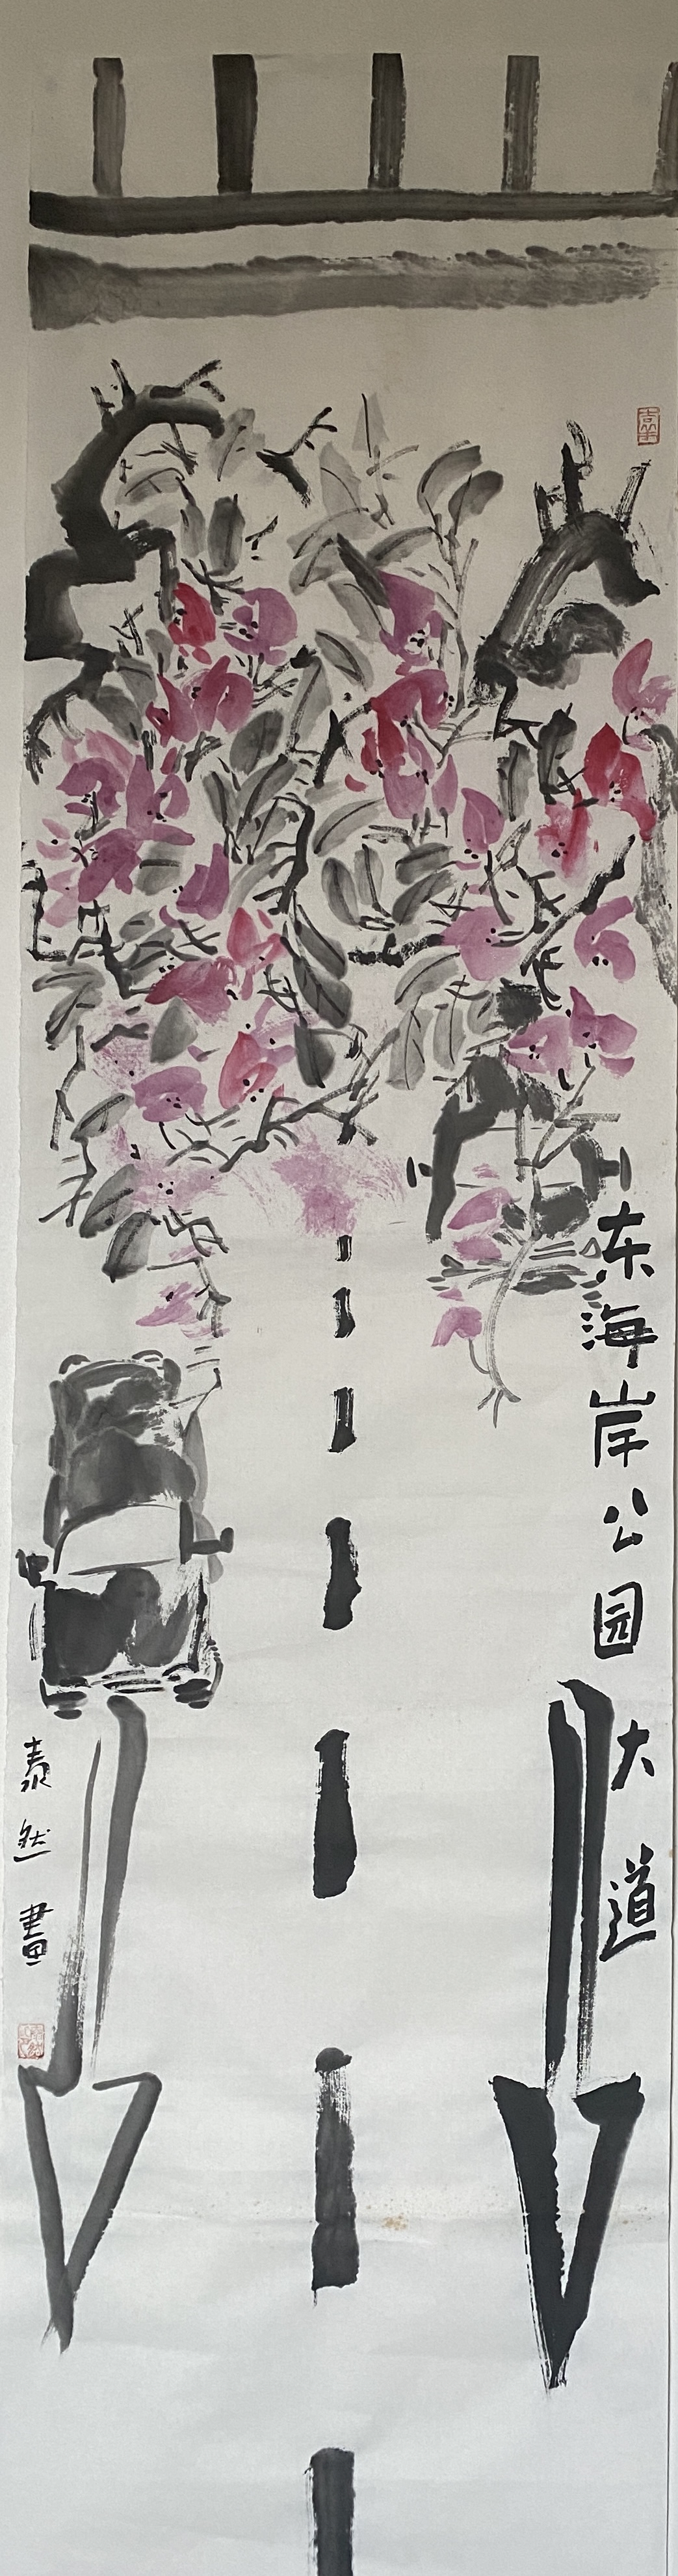 东海岸公园大道
泰然畫